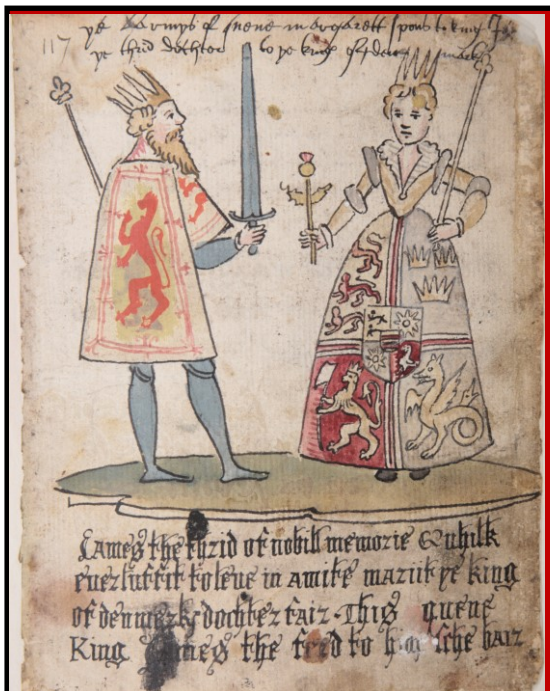 117
ye armys of quene margarett spous to king
ye thrid dochter to ye king of
James the thrid of nobill memorie Quhilk
euer luffit to leue in amite mariit ye king
of denmerks dochter fair. This quene
King James the ferd to sche bair